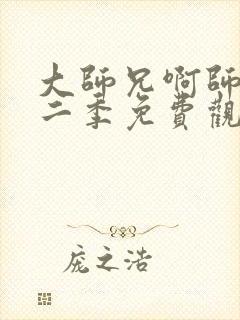 大師兄啊師
二季免費觀
庞之浩